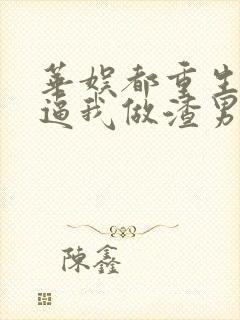 華娱都重生
逼我做渣男
陳鑫